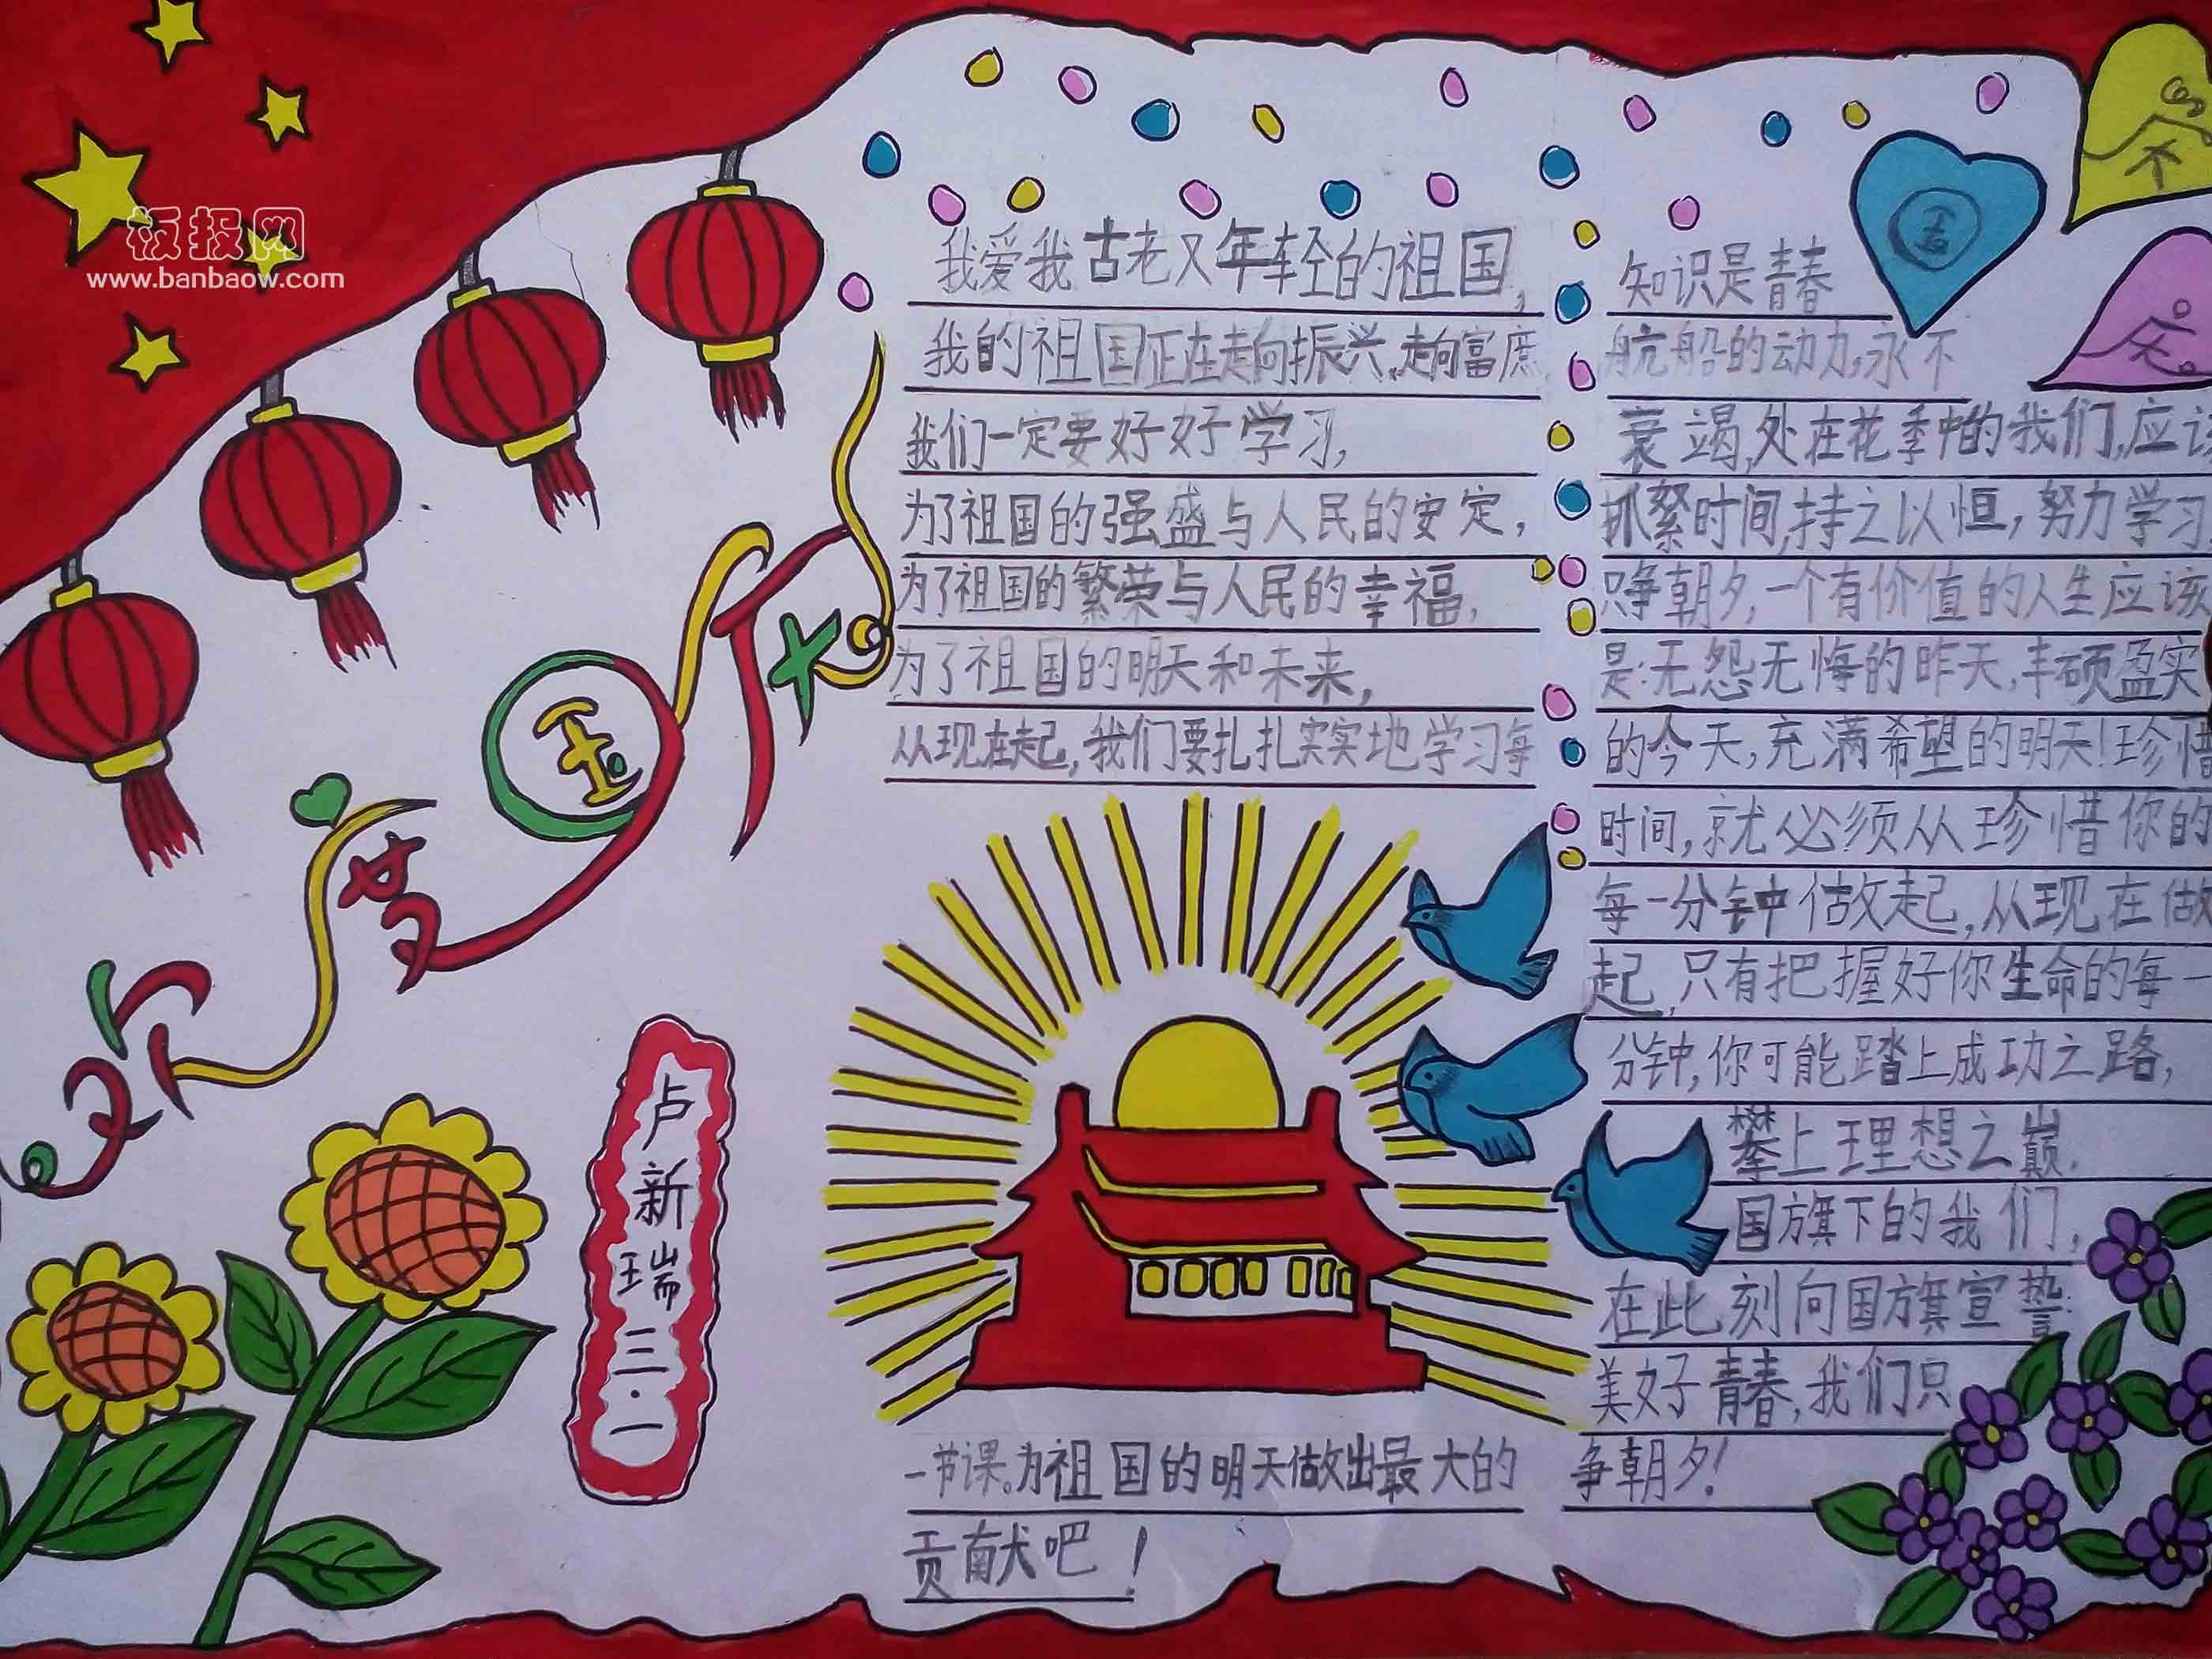 板报网
www.banbaow.com
欢度国庆
卢新瑞三.一
我爱我古老又年轻的祖国,
我的祖国正在走向振兴,走向富庶
我们一定要好好学习,
为了祖国的强盛与人民的安定,
为了祖国的繁荣与人民的幸福,
为了祖国的明天和未来,
从现在起,我们要扎扎实实地学习每
一节课。为祖国的明天做出最大的
贡献吧!
知识是青春
航船的动力,永不
衰竭,处在花季中的我们,应该
抓紧时间,持之以恒,努力学习,
只争朝夕,一个有价值的人生应该
是:无怨无悔的昨天,丰硕盈实
的今天,充满希望的明天!珍惜
时间,就必须从珍惜你的
每一分钟做起,从现在做
起,只有把握好你生命的每一
分钟,你可能踏上成功之路,
攀上理想之巅.
国旗下的我们,
在此刻向国旗宣誓:
美好青春,我们只
争朝夕!